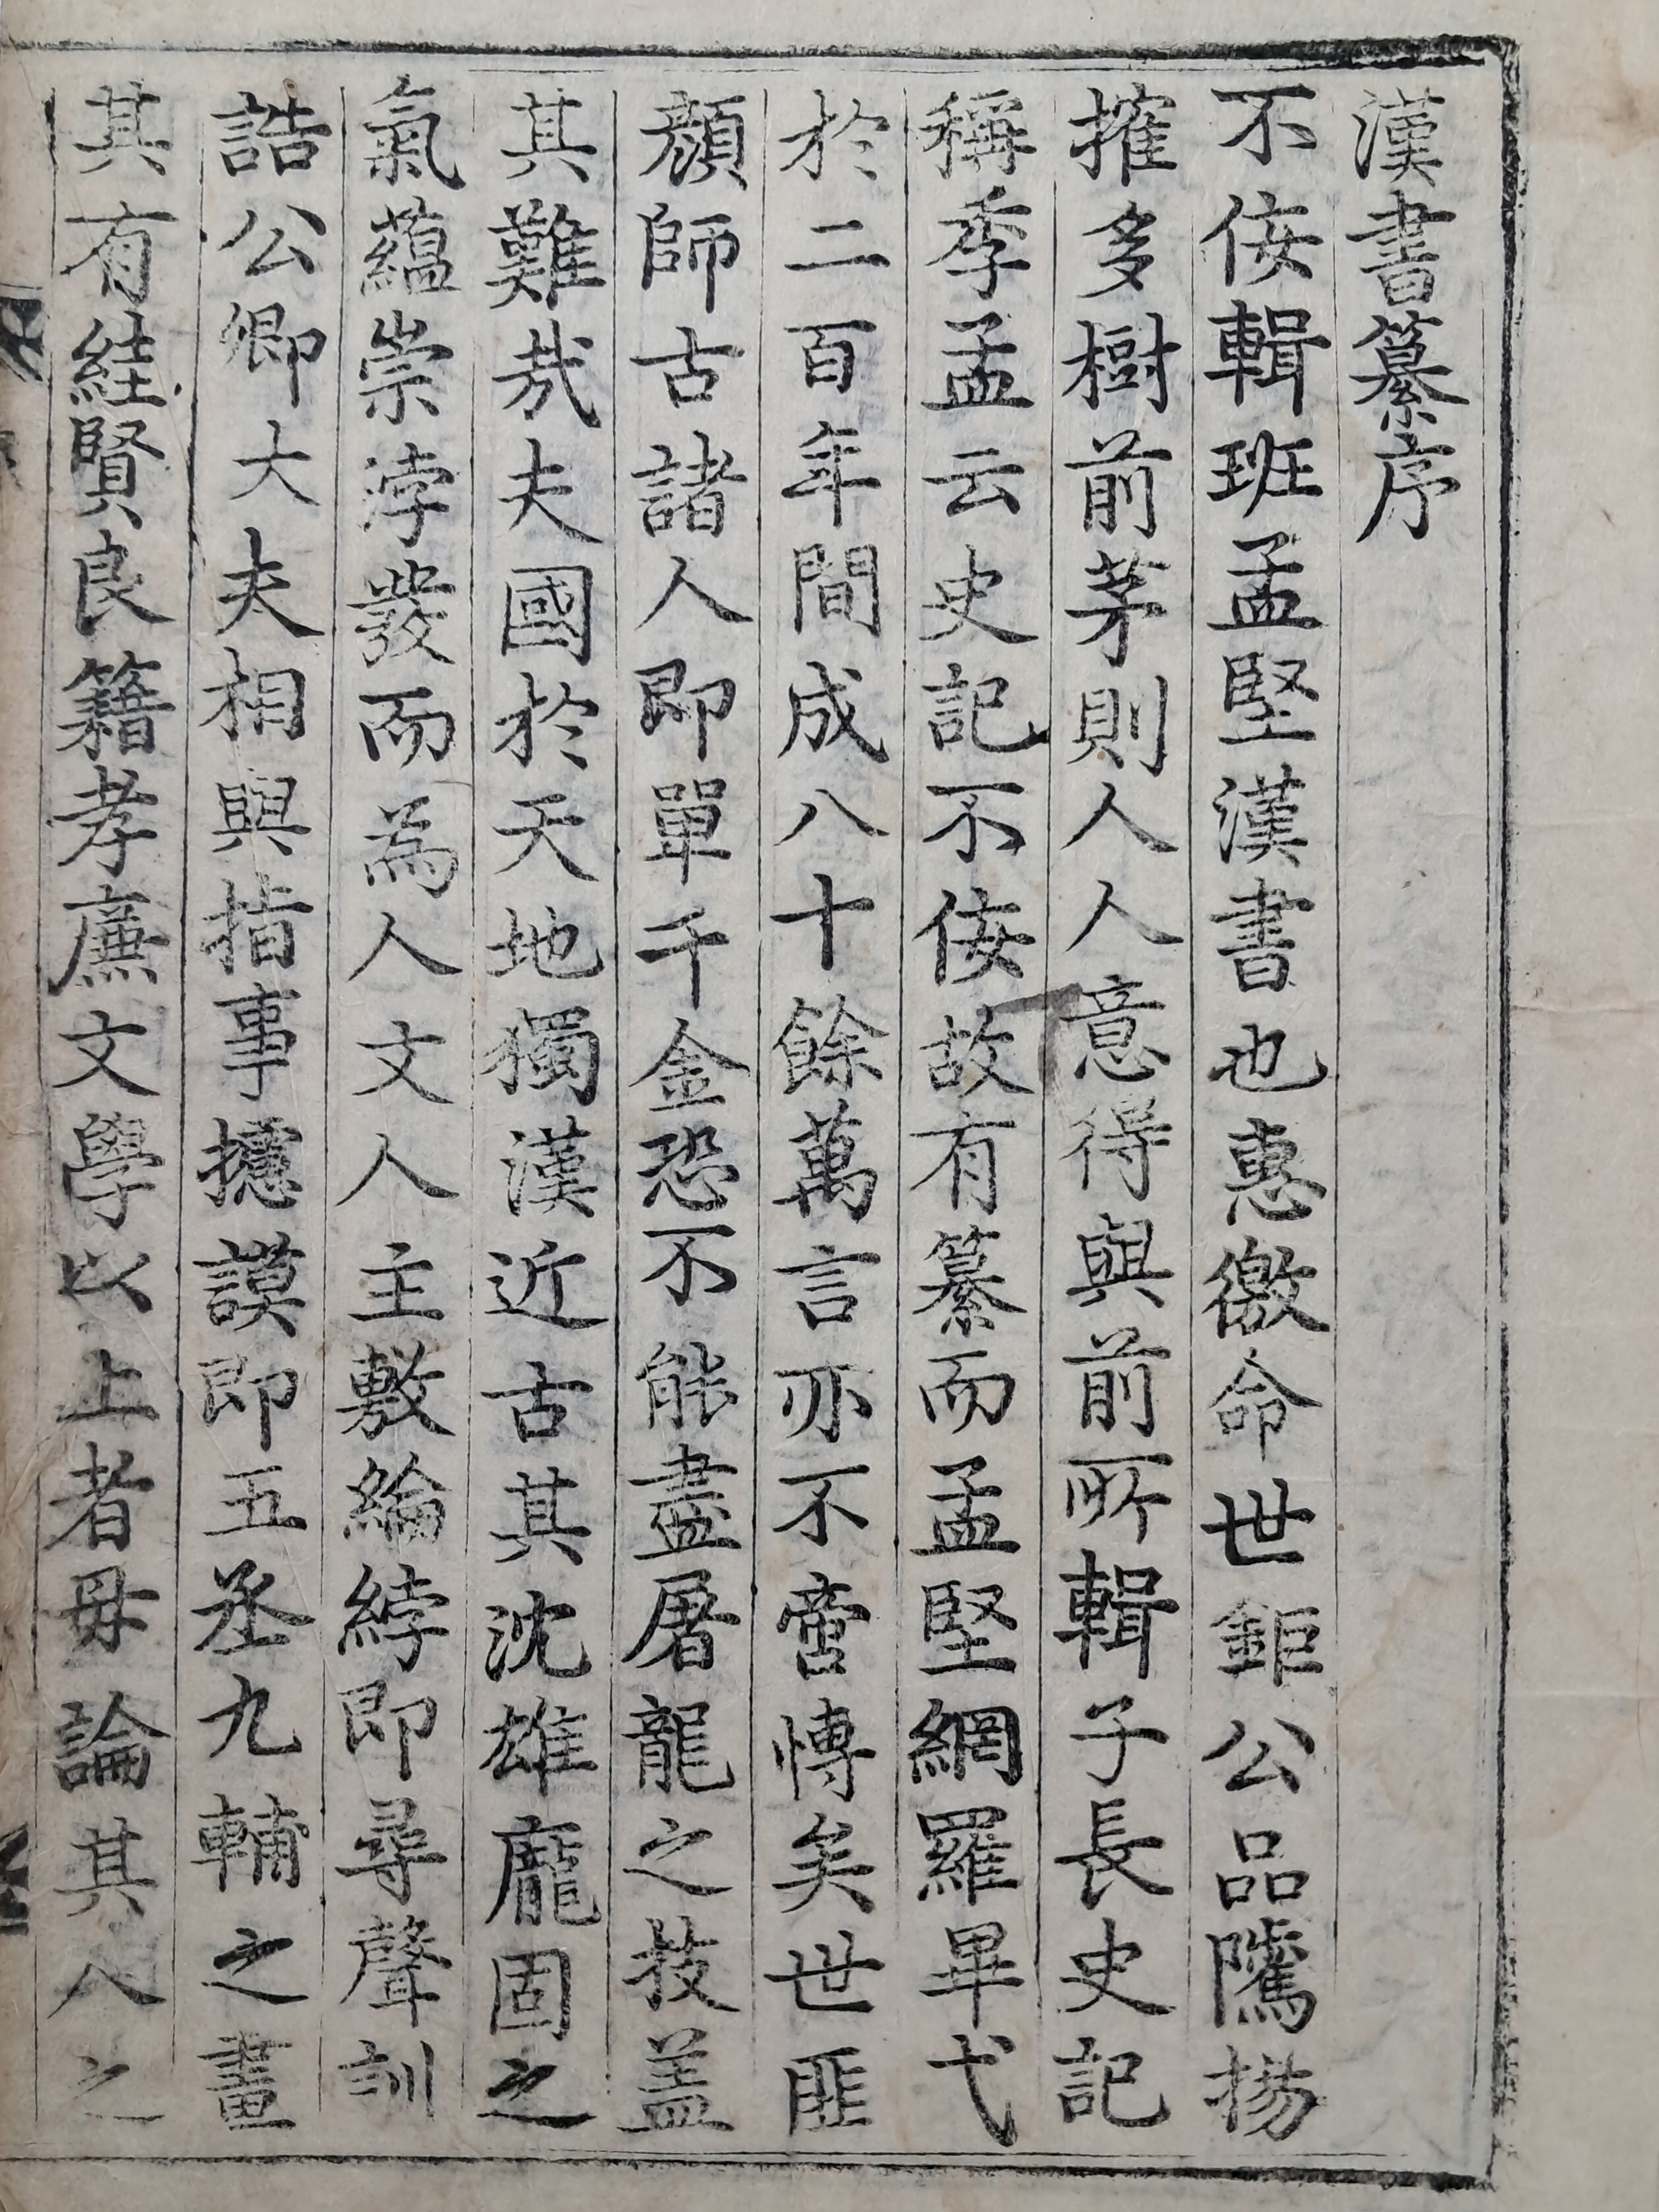 漢書纂序
不佞輯班孟堅漢書也惠徼命世鉅公品隲揚
搉多樹前茅則人人意得與前所輯子長史記
稱季孟云史記不佞故有纂而孟堅網羅畢弋
於二百年間成八十餘萬言亦不啻博矣世匪
顏師古諸人即單千金恐不能盡屠龍之技盖
其難哉夫國於天地獨漢近古其沈雄龐固之
氣蘊崇浡發而為人文人主敷綸綍即尋聲訓
誥公卿大夫相與揣事攄謨即五丞九輔之畫
其有絓賢良籍孝廉文學以上者毋論其人之